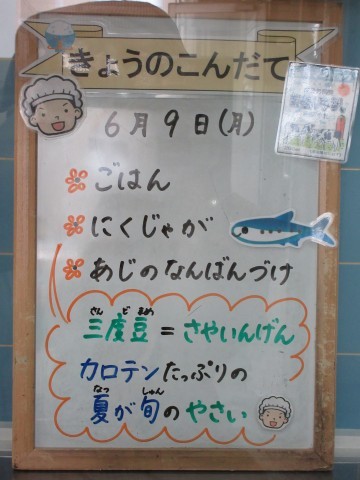 きょうのこんだて
6月9日(月)
ごはん
にくじゃが
あじのなんばんづけ
さんどまめ
三度豆=さやいんげん
カロテンたっぷりの
なつ しゅん
夏が旬のやさい